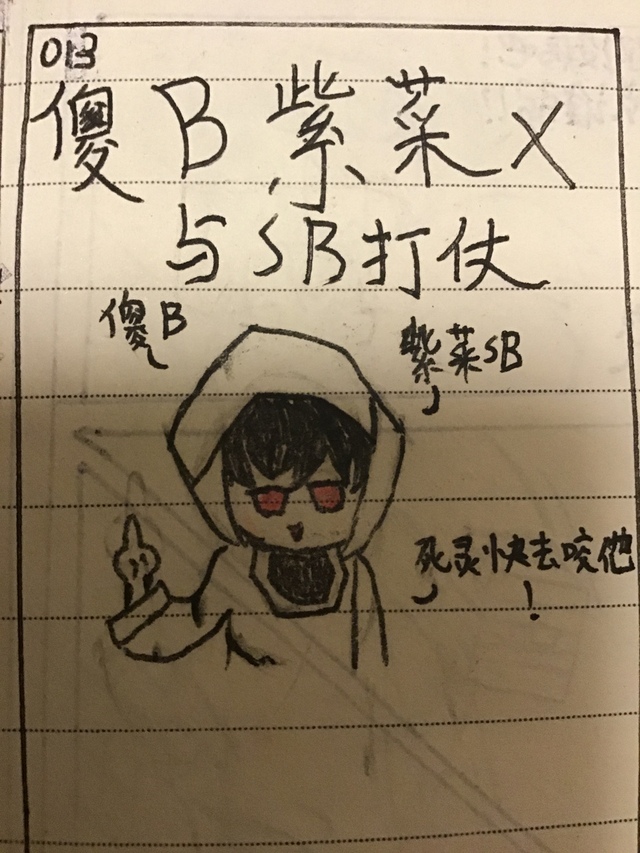 013
傻B紫菜X
与SB打仗
傻B
紫菜SB
死灵快去咬他
！